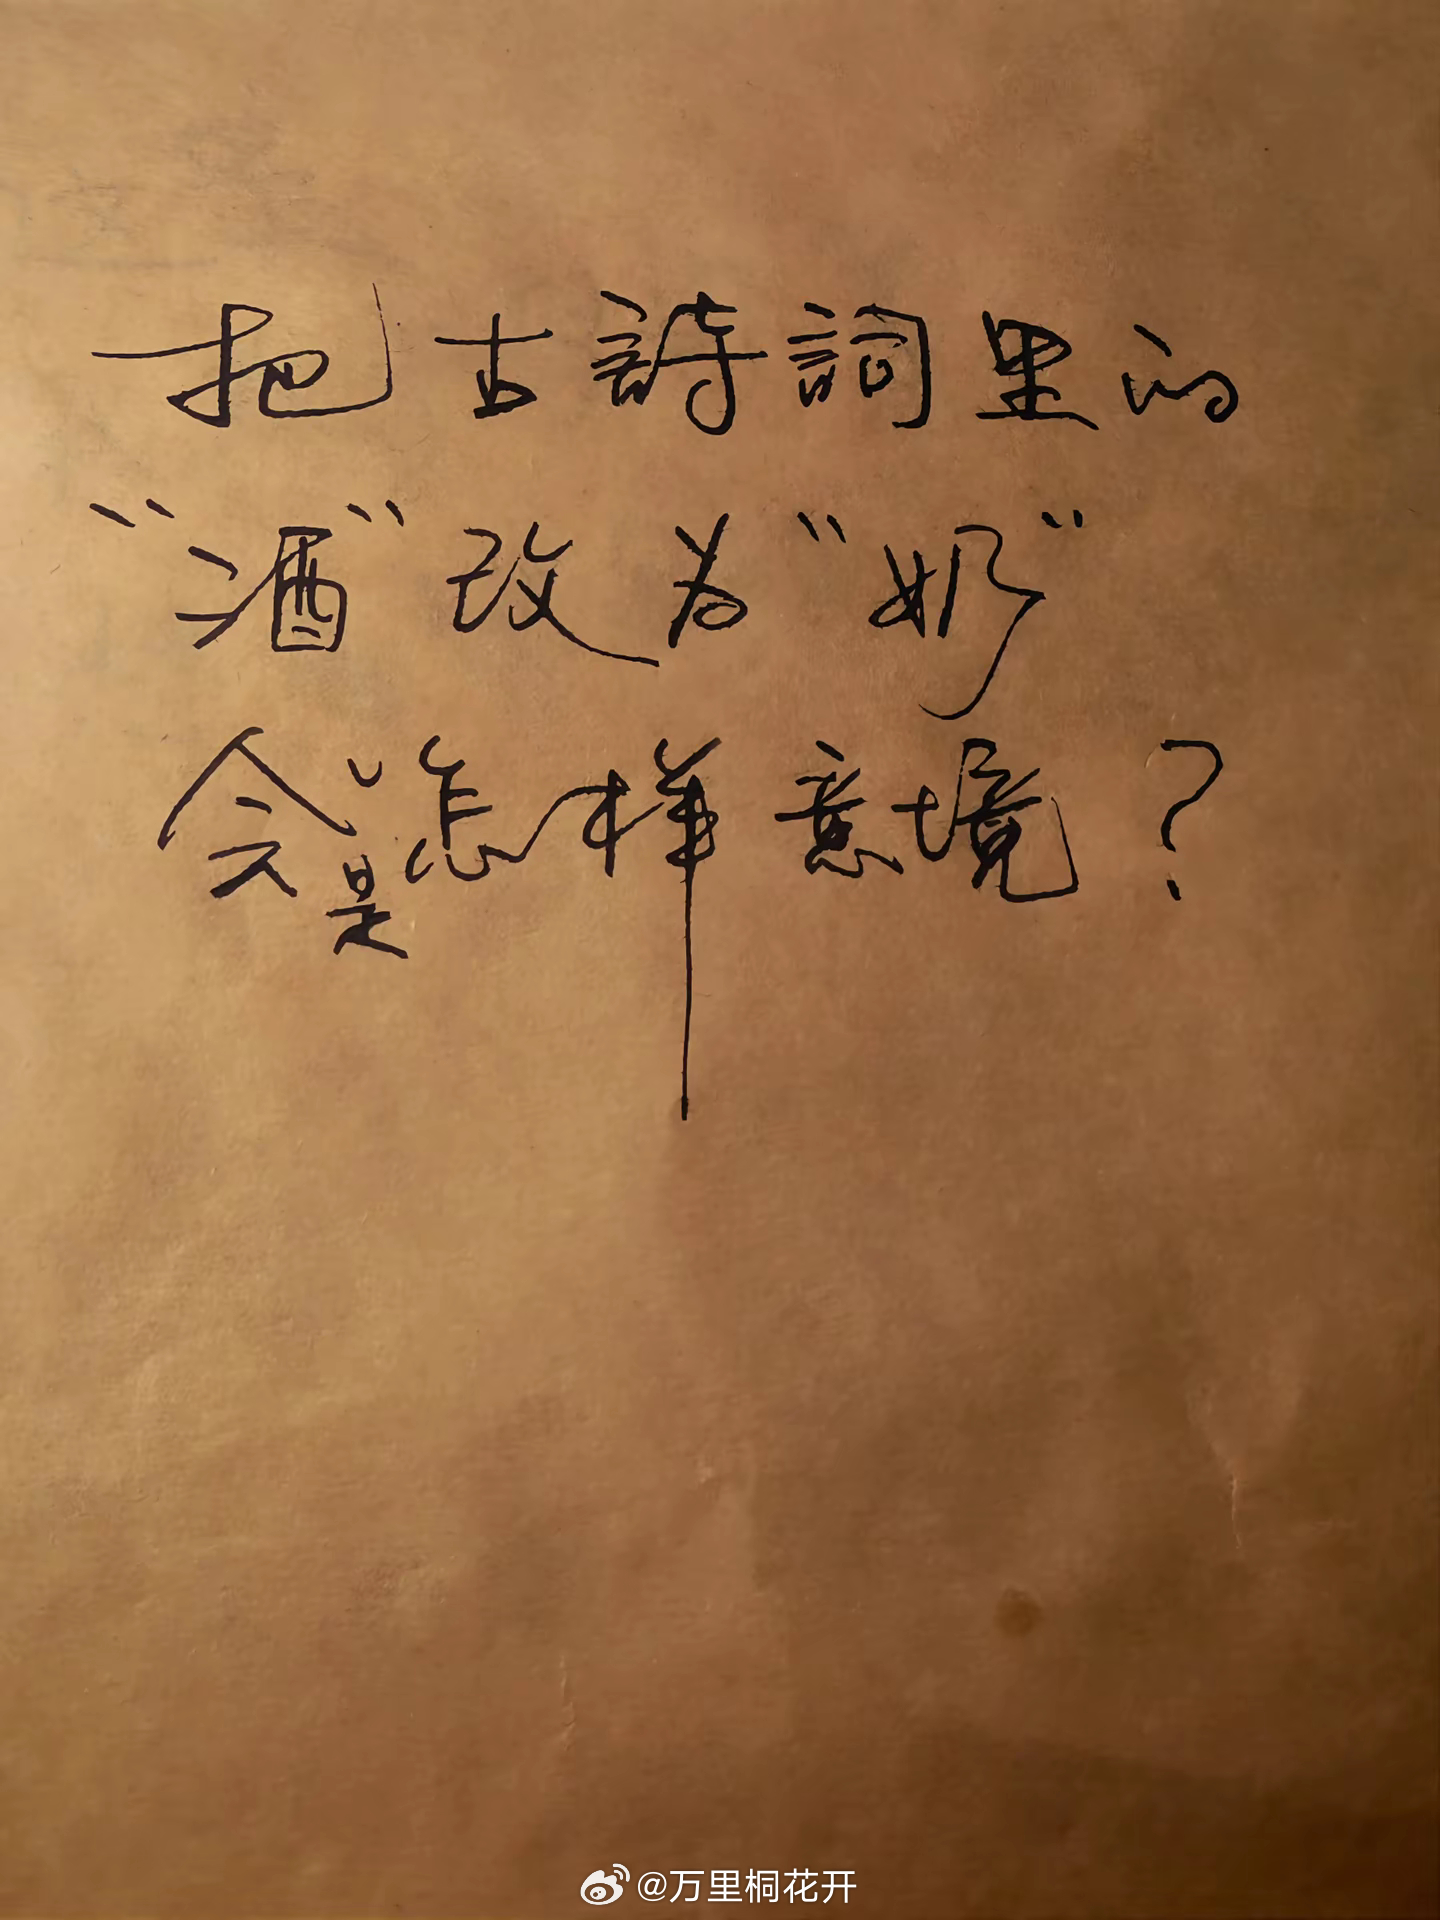 把古詩詞里的
“酒”改为“奶”
会是怎样意境？
@万里桐花开